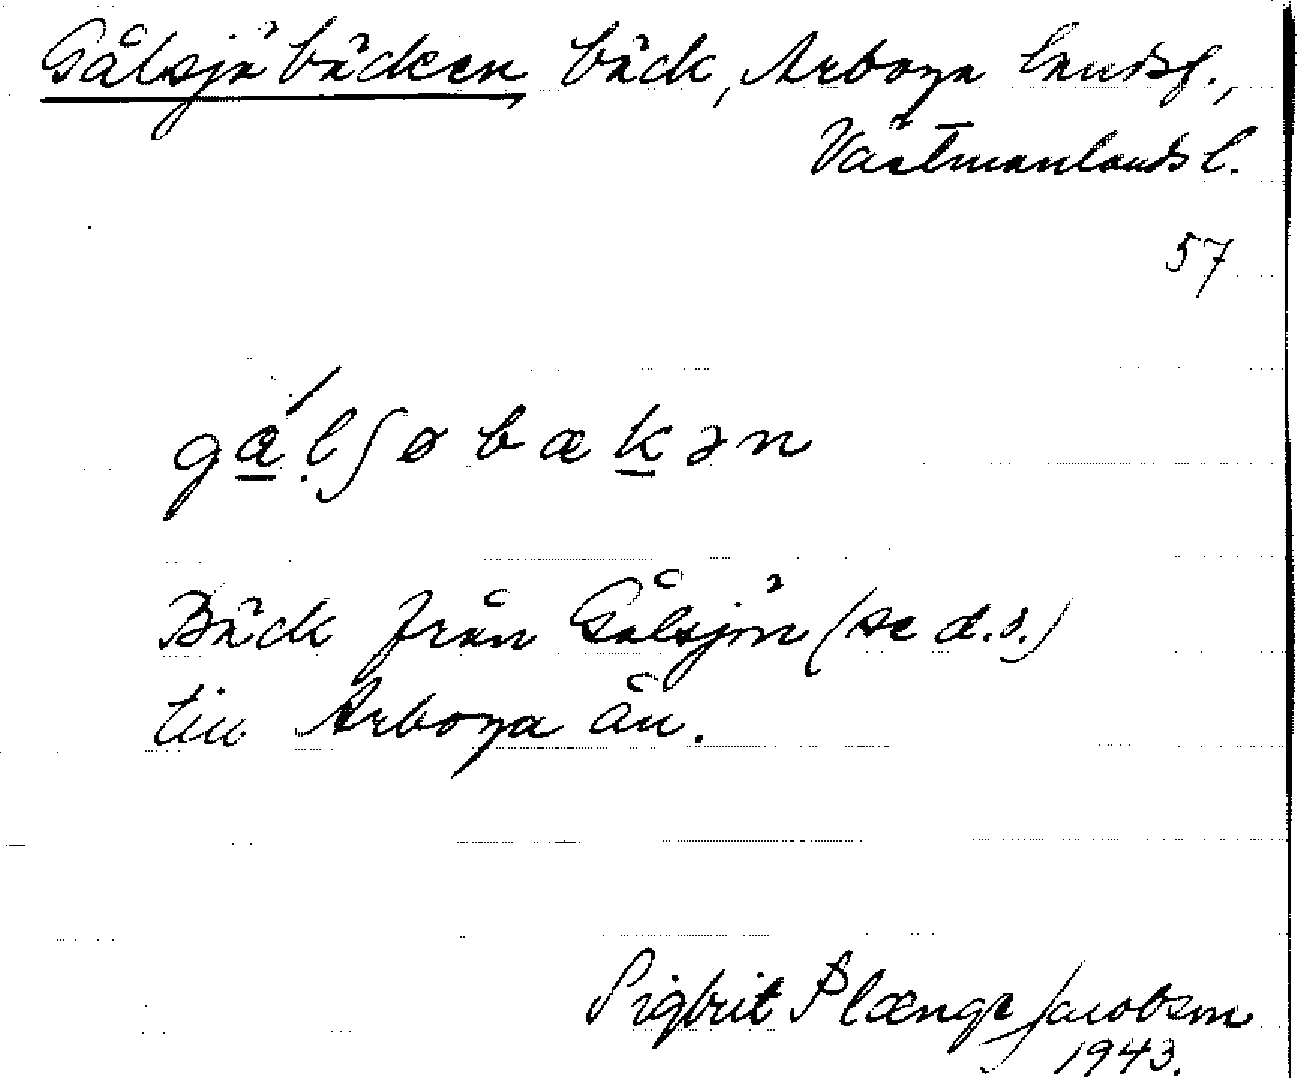 Gålsjöbäcken, bäck, Arboga landsf.,
Västmanlands l.
57
gǽḷʃøbækən
Bäck från Gålsjön (se d.o.)
till Arboga ån.
Sigbrit Plænge Jacobson
1943.